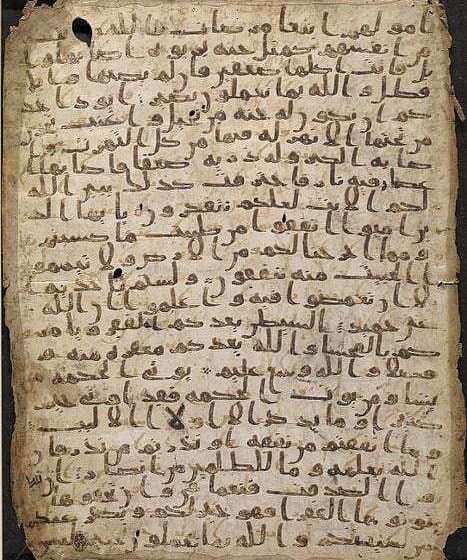 امولهم ابتغا مرضات الله وتثبيتا
من انفسهم كمثل جنة بربوة اصابها وا
بل فاتت اكلها ضعفين فان لم يصبها وابل
فطل والله بما تعملون بصير ايود احد
كم ان تكون له جنة من نخيل واعنب تجري
من تحتها الانهر له فيها من كل الثمرت وا
صابه الكبر وله ذرية ضعفا فاصابها ا
عصار فيه نار فاحترقت كذلك يبين الله
لكم الايت لعلكم تتفكرون يايها الذ
ين امنوا انفقوا من طيبت ما كسبتم
ومما اخرجنا لكم من الارض ولا تيمموا
الخبيث منه تنفقون ولستم باخذيه
الا ان تغمضوا فيه واعلموا ان الله
غني حميد الشيطن يعدكم الفقر ويامر
كم بالفحشا والله يعدكم مغفرة منه و
فضلا والله وسع عليم يوتي الحكمة من
يشا ومن يوت الحكمة فقد اوتي خيرا
كثيرا وما يذكر الا اولوا الالبب
وما انفقتم من نفقة او نذرتم من نذر فان
الله يعلمه وما للظلمين من انصار ان
تبدوا الصدقت فنعما هي وان تخفوها و
توتوها الفقرا فهو خير لكم ويكفر عنكم
من سياتكم والله بما تعملون خبير ليس